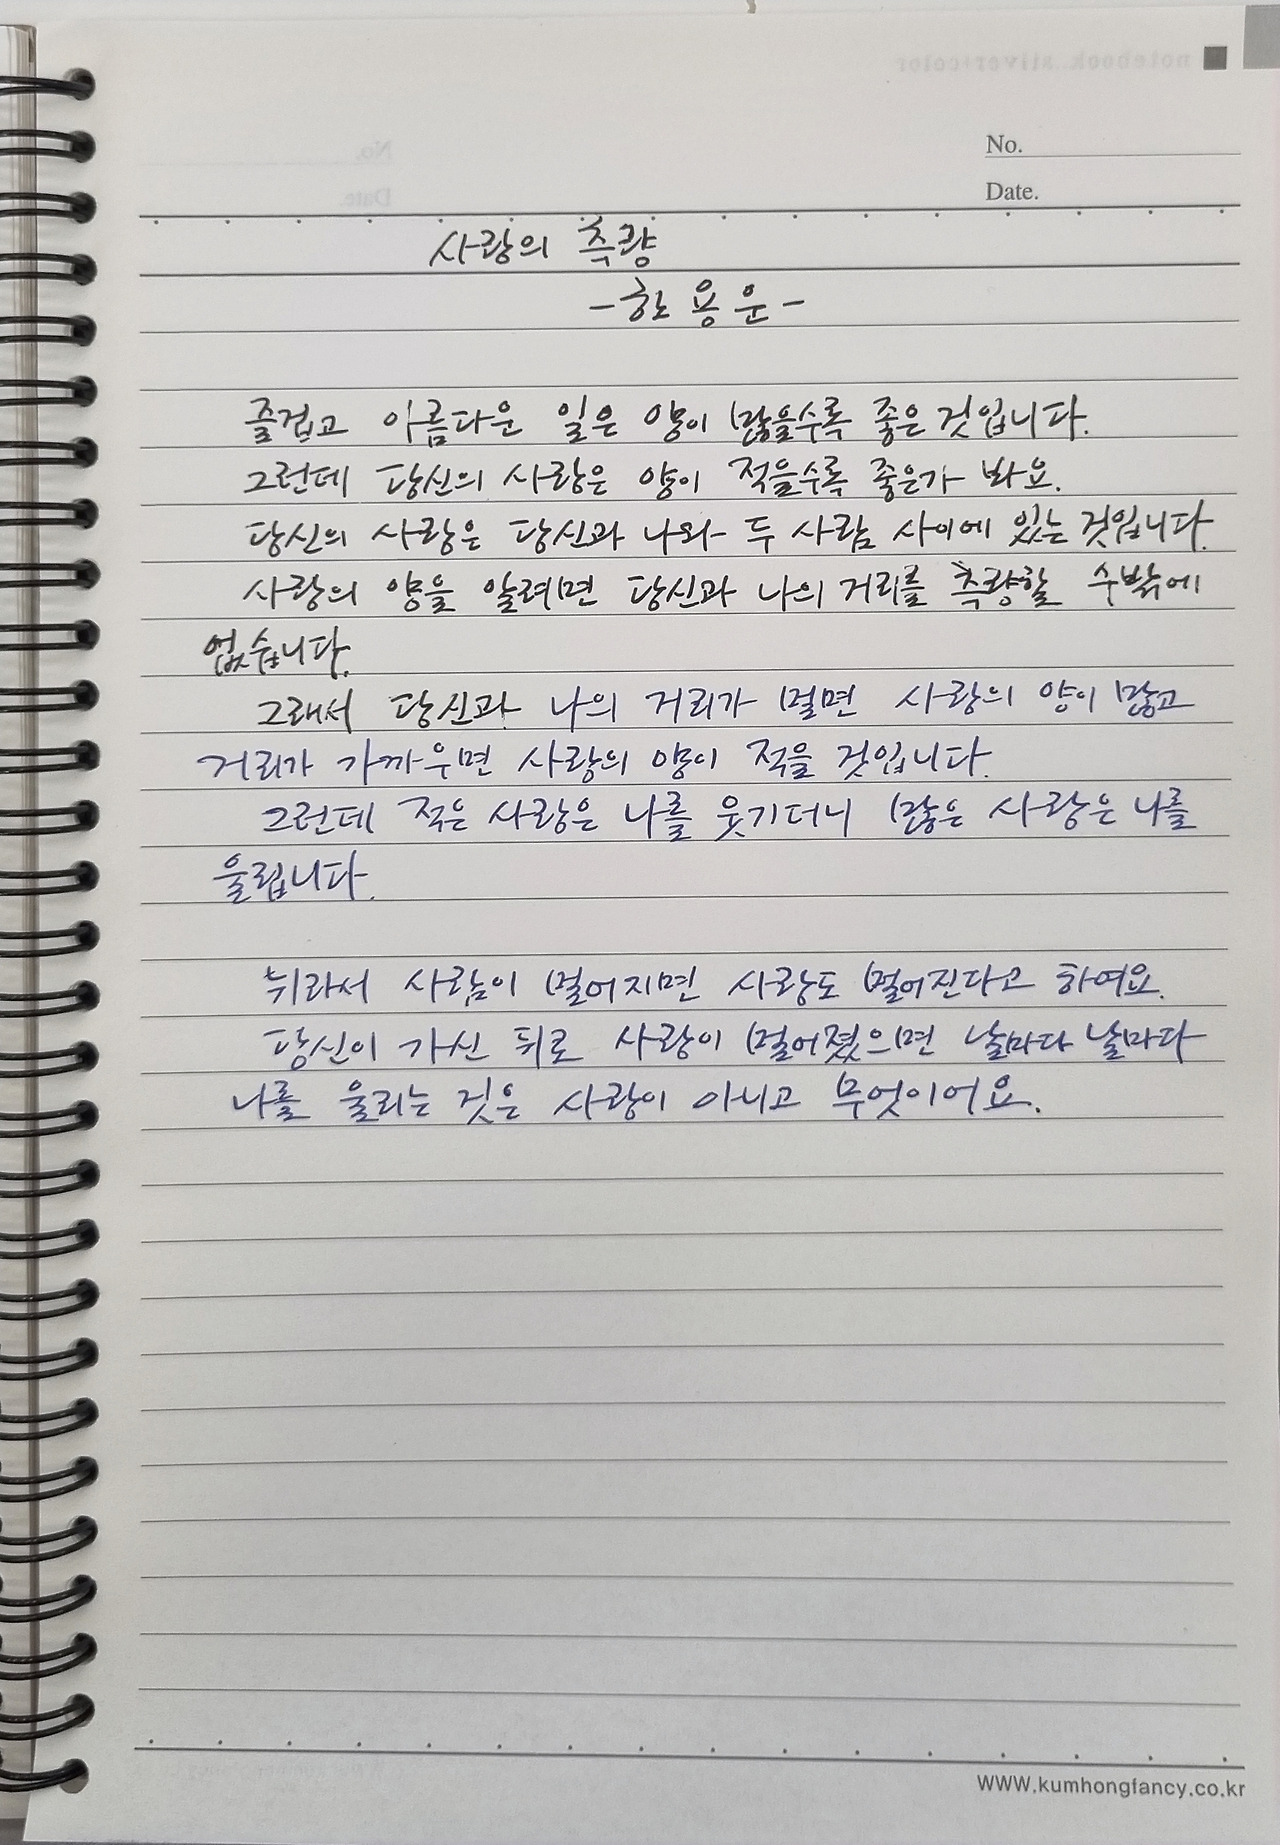 notebook silver+color
No.
Date.
사랑의 측량
-한용운-
즐겁고 아름다운 일은 양이 많을수록 좋은 것입니다.
그런데 당신의 사랑은 양이 적을수록 좋은가 봐요.
당신의 사랑은 당신과 나와 두 사람 사이에 있는 것입니다.
사랑의 양을 알려면 당신과 나의 거리를 측량할 수밖에
없습니다.
그래서 당신과 나의 거리가 멀면 사랑의 양이 많고
거리가 가까우면 사랑의 양이 적을 것입니다.
그런데 적은 사랑은 나를 웃기더니 많은 사랑은 나를
울립니다.
뉘라서 사람이 멀어지면 사랑도 멀어진다고 하여요.
당신이 가신 뒤로 사랑이 멀어졌으면 날마다 날마다
나를 울리는 것은 사랑이 아니고 무엇이어요.
www.kumhongfancy.co.kr